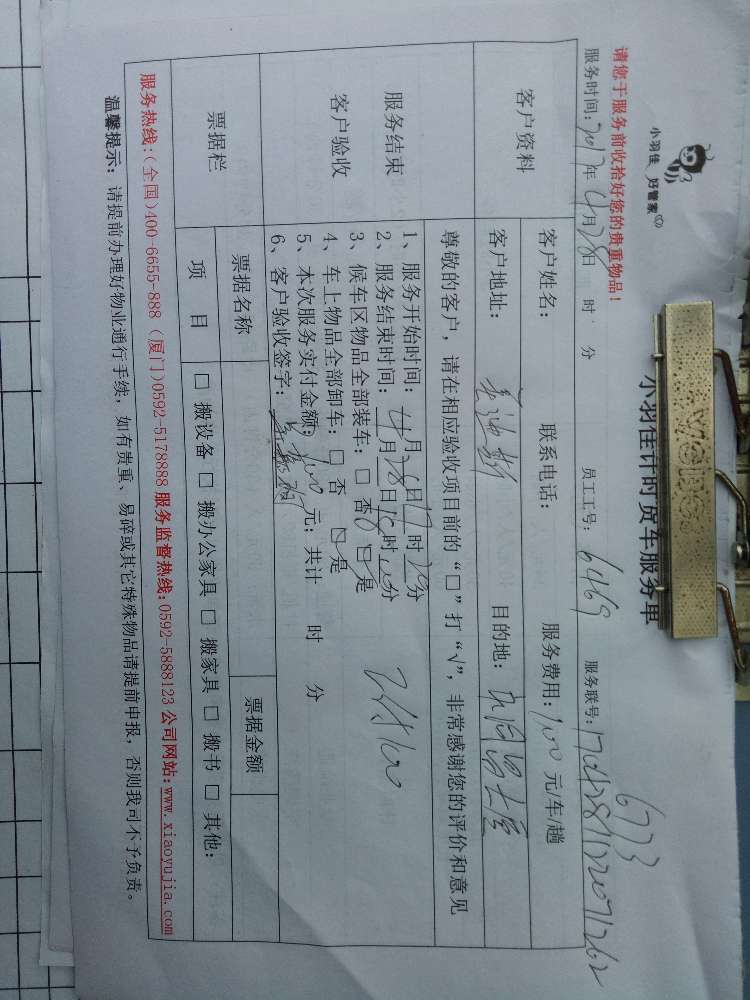 小羽佳 好管家
请您于服务前收拾好您的贵重物品！
小羽佳计时货车服务单
服务时间：2017年4月28日 时 分 员工工号：6469 服务联号：
6773
客户资料
客户姓名： 联系电话： 服务费用：100元/车/趟
客户地址： 目的地：
尊敬的客户，请在相应验收项目前的“□”打“√”，非常感谢您的评价和意见
服务结束
客户验收
1、服务开始时间：
2、服务结束时间：4月28日
3、候车区物品全部装车：□ 否 □ 是
4、车上物品全部卸车：□ 否 □ 是
5、本次服务实付金额：100元；共计 时 分
6、客户验收签字：
票据栏
票据名称 票据金额
项 目 □ 搬设备 □ 搬办公家具 □ 搬家具 □ 搬书 □ 其他：
服务热线：(全国)400-6655-888 (厦门)0592-5178888 服务监督热线：0592-5888123 公司网站：www.xiaoyujia.com
温馨提示：请提前办理好物业通行手续，如有贵重、易碎或其它特殊物品请提前申报，否则我司不予负责。